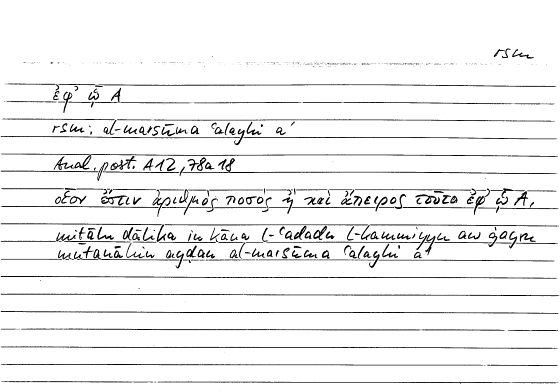 rsm
ἐφ' ᾧ A
rsm: al-marsūma ʿalayhi a'
Anal. post. A 12, 78a 18
οἷον ἔστιν ἀριθμὸς ποσὸς ἢ καὶ ἄπειρος τοῦτο ἐφ' ᾧ A,
miṯālu ḏālika in kāna l-ʿadadu l-kammiyyu aw ġayru
mutanāhin ayḍan al-marsūma ʿalayhi a'